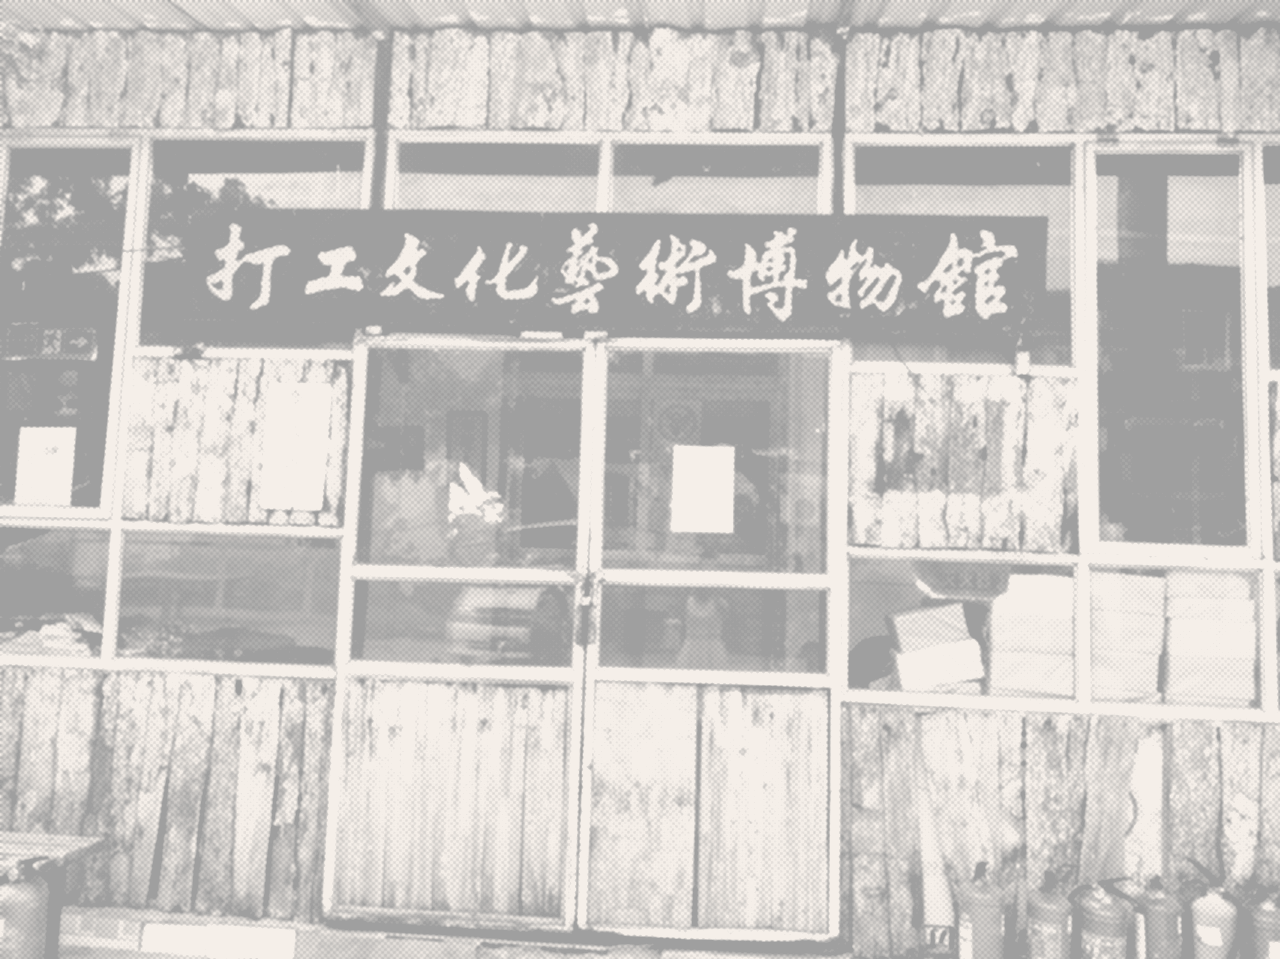 打工文化藝術博物館